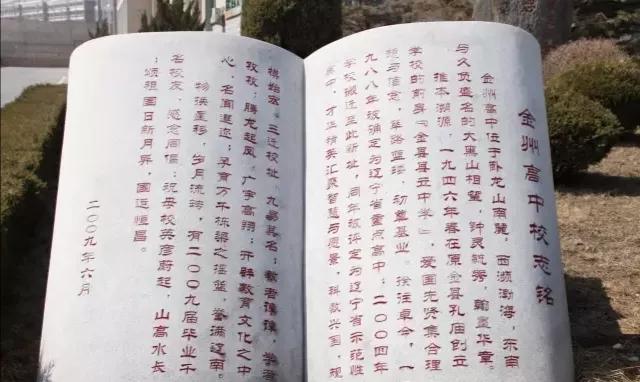 金州高中校志铭
金州高中位于卧龙山南麓，西濒渤海，东南
与久负盛名的大黑山相望，钟灵毓秀，翰墨华章。
推本溯源，一九四六年春在原金县孔庙创立
学校的前身「金县县立中学」，爱国先贤集合理
想与信念，筚路蓝缕，奠基业。卓今，一
九八八年被确定为辽宁省重点高中；二〇〇四年
学校搬迁至此新址，同年被评定为辽宁省示范性
高中，精英汇聚智慧与愿景，科教兴国，规
模始宏。三迁校址，九易其名；教者谆谆，学者
孜孜；腾龙起凤，广宇高翔；开辟教育文化之中
心，名闻遐迩；孕育万千栋梁之摇篮，誉满辽南。
物换星移，岁月流转，有二〇〇九届毕业千
名校友，感念同偕：祝母校英彦蔚起，山高水长
；颂祖国日新月异，国运恒昌。
二〇〇九年六月